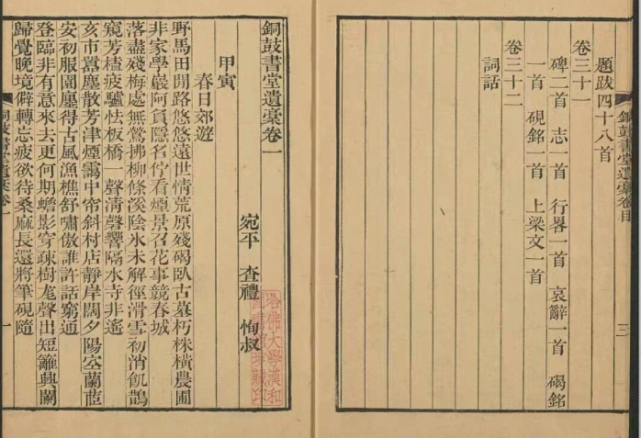 銅鼓書堂遺稾卷目 三
題跋四十八首
卷三十一
碑二首 志一首 行畧一首 哀辭一首 碣銘
一首 硯銘一首 上梁文一首
卷三十二
詞話
銅鼓書堂遺稾卷一
宛平 查禮 恂叔
哈佛大學漢和
甲寅
春日郊遊
野馬田閒路悠悠遠世情荒原殘碣臥古墓朽株橫農圃
非家學巖阿負隱名佇看煙景召花事競春城
落盡殘梅處無鶯拂柳條溪陰氷未解徑滑雪初消飢鵲
窺芳榼疲驢怯板橋一聲清磬響隔水寺非遙
亥市囂塵散芳津煙靄中帘斜村店靜岸闊夕陽空蘭茝
安初服園廛得古風漁樵舒嘯傲誰許話窮通
登臨非有意來去更何期蟾影穿疎樹尨聲出短籬興闌
歸覺晚境僻轉忘疲欲待桑麻長還將筆硯隨
銅鼓書堂遺稾卷一 一